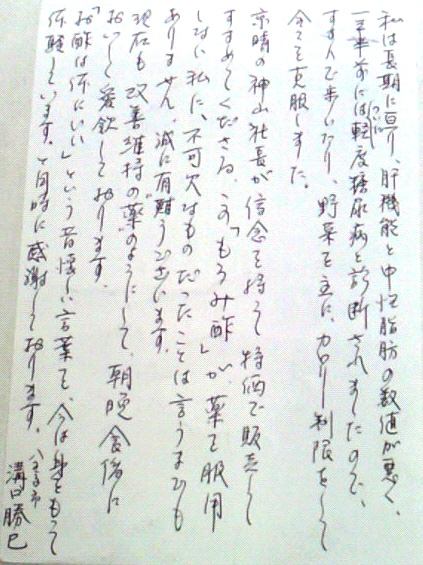 私は長期に亘り、肝機能と中性脂肪の数値が悪く、
一年半前には ついに 軽度糖尿病と診断されましたので、
すすんで歩いたり、野菜を主に、カロリー制限をして
全てを克服しました。
京晴の神山社長が信念を持って特価で販売して
すすめてくださる、この「もろみ酢」が、薬を服用
しない私に、不可欠なものだったことは言うまでも
ありません。誠に有難うございます。
現在も改善維持の“薬”のようにして、朝晩食後に
おいしく愛飲しております。
「お酢は体にいい」という昔懐しい言葉を、今は身をもって
体験しています。と同時に感謝しております。
溝口勝巳